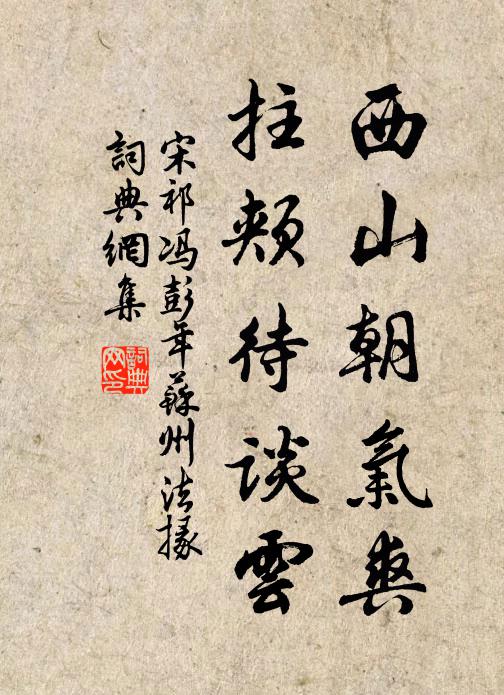 西山朝氣爽
拄頰待談雲
宋祁馮彭年蘇州法掾
詞典網集
詞典網印